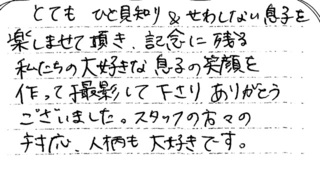 とても ひと見知り & せわしない息子を
楽しませて頂き、記念に残る
私たちの大好きな息子の笑顔を
作って撮影して下さり ありがとう
ございました。スタッフの方々の
対応、人柄も大好きです。